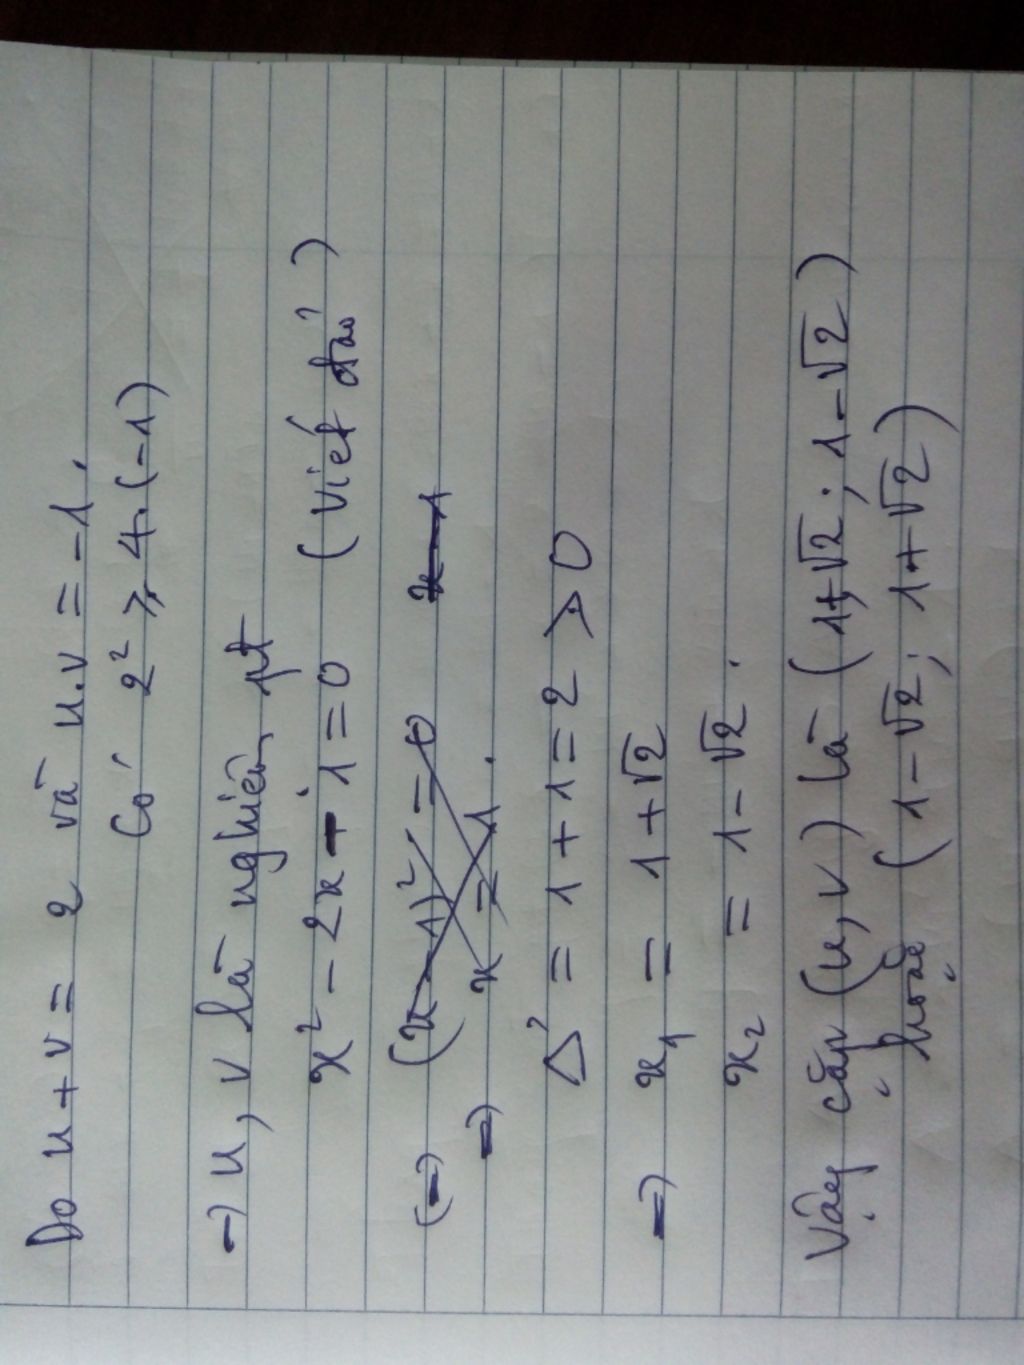 Do u + v = 2 và u.v = -1.
Có 2² ⩾ 4.(-1)
→ u, v là nghiệm pt
x² - 2x - 1 = 0 (Viết đảo?)
(=) (x - 1)² = 0 x - 1
=) x = 1.
Δ' = 1 + 1 = 2 > 0
=) x₁ = 1 + √2
x₂ = 1 - √2.
Vậy cặp (u, v) là (1+√2; 1-√2)
hoặc (1-√2; 1+√2)